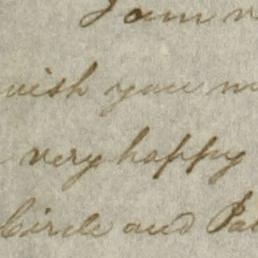 I am
wish you
very happy
Circle and